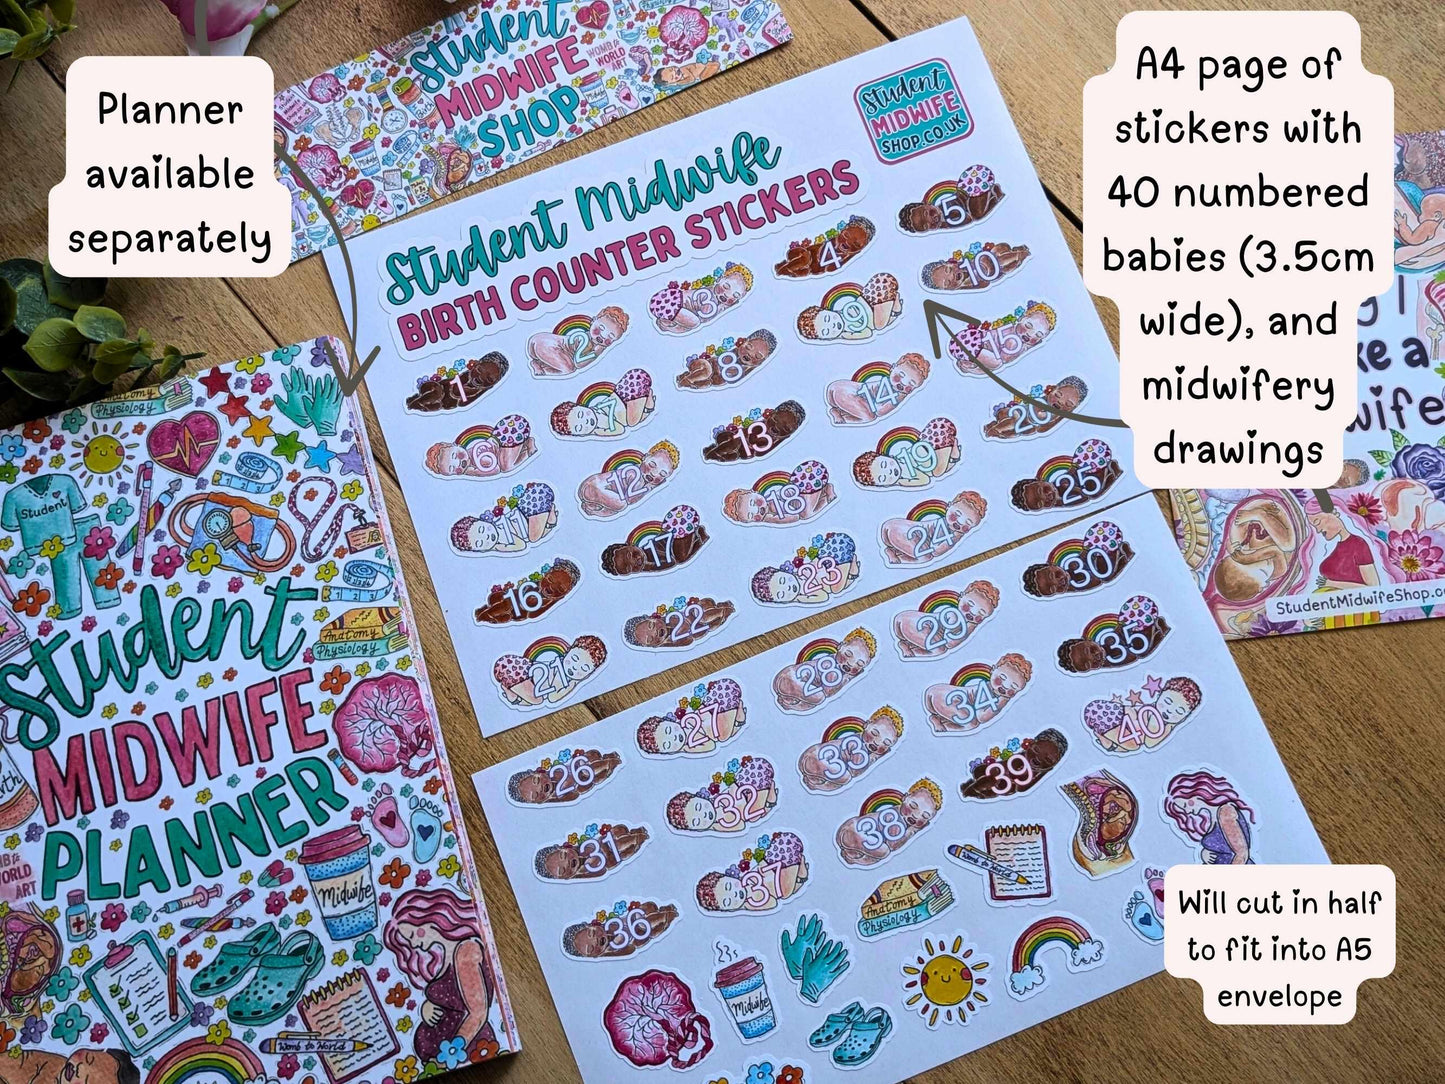 Planner
available
separately
Student
MIDWIFE
SHOP
WOMB to
WORLD
ART
Student
MIDWIFE
SHOP.CO.UK
A4 page of
stickers with
40 numbered
babies (3.5cm
wide), and
midwifery
drawings
Student Midwife
BIRTH COUNTER STICKERS
1
2
3
4
5
6
7
8
9
10
11
12
13
14
15
16
17
18
19
20
21
22
23
24
25
26
27
28
29
30
31
32
33
34
35
36
37
38
39
40
Anatomy
Physiology
Midwife
Womb to World
Anatomy
Physiology
Student
Anatomy
Physiology
Student
MIDWIFE
PLANNER
WORLD
ART
Midwife
Womb to World
StudentMidwifeShop.co
Will cut in half
to fit into A5
envelope